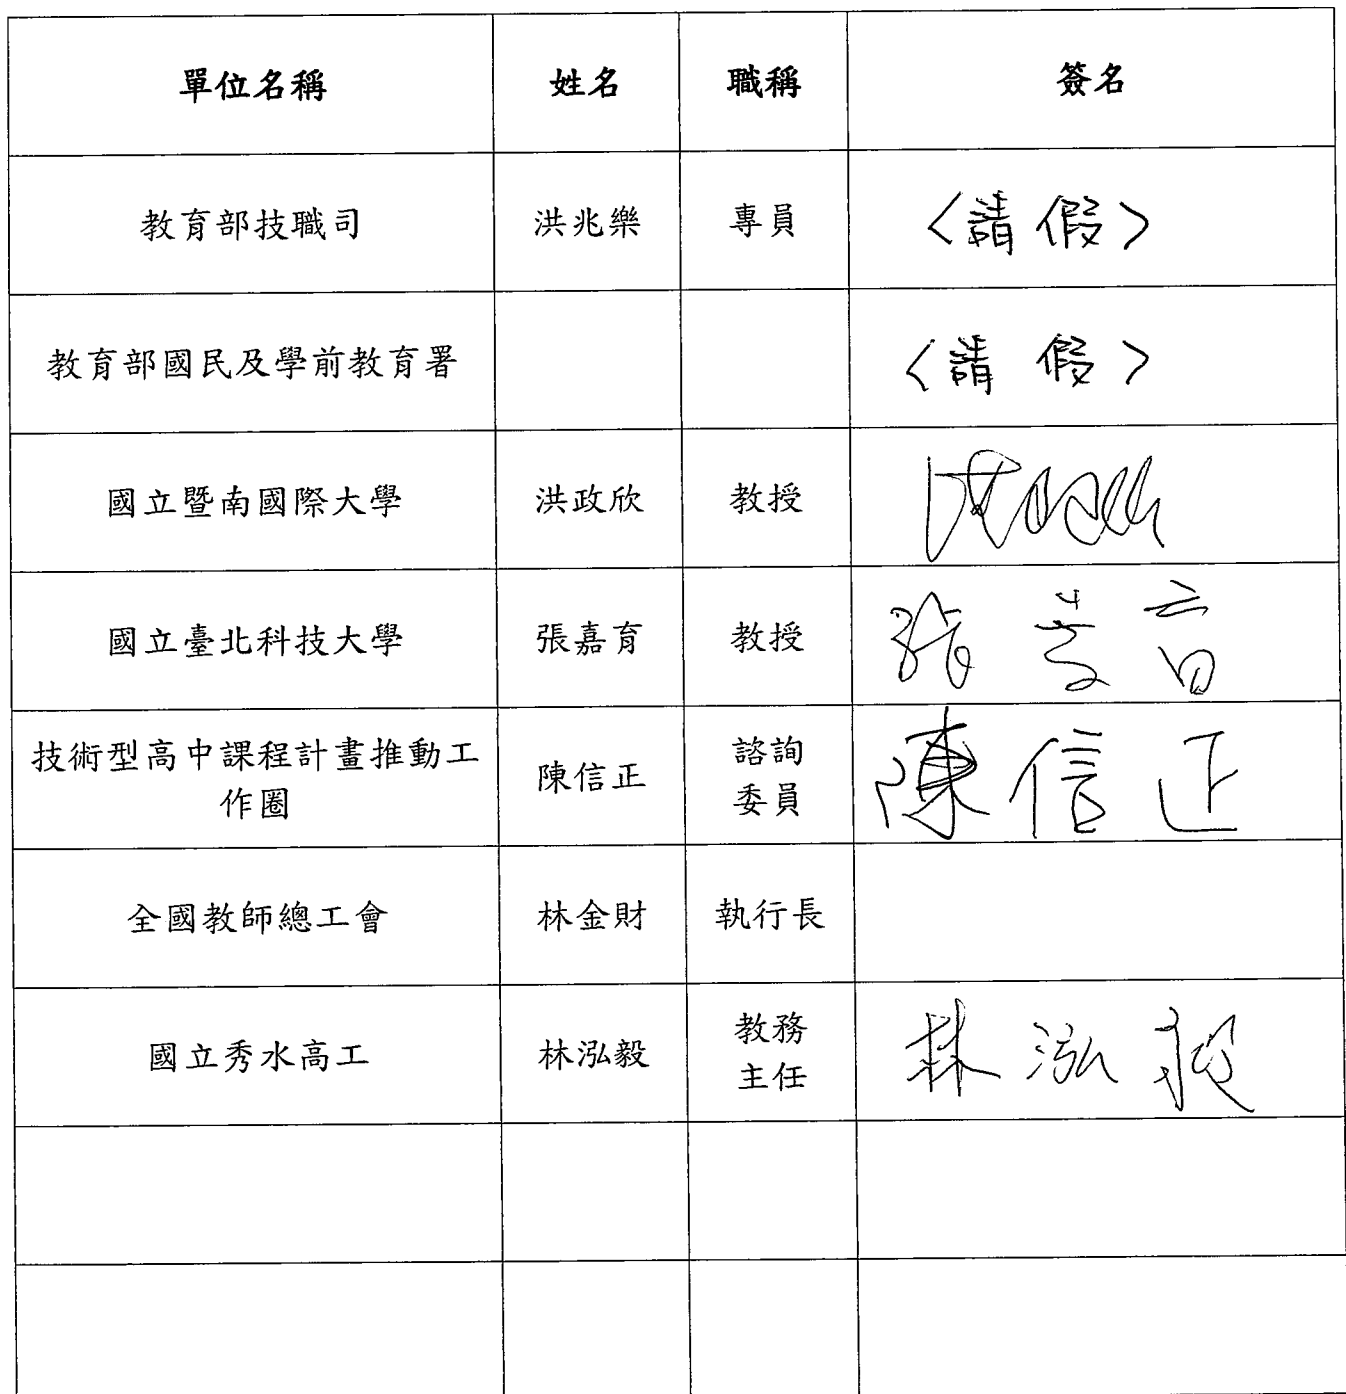 單位名稱 姓名 職稱 簽名
教育部技職司 洪兆樂 專員 〈請假〉
教育部國民及學前教育署 〈請假〉
國立暨南國際大學 洪政欣 教授
國立臺北科技大學 張嘉育 教授 張嘉育
技術型高中課程計畫推動工
作圈 陳信正 諮詢
委員 陳信正
全國教師總工會 林金財 執行長
國立秀水高工 林泓毅 教務
主任 林泓毅